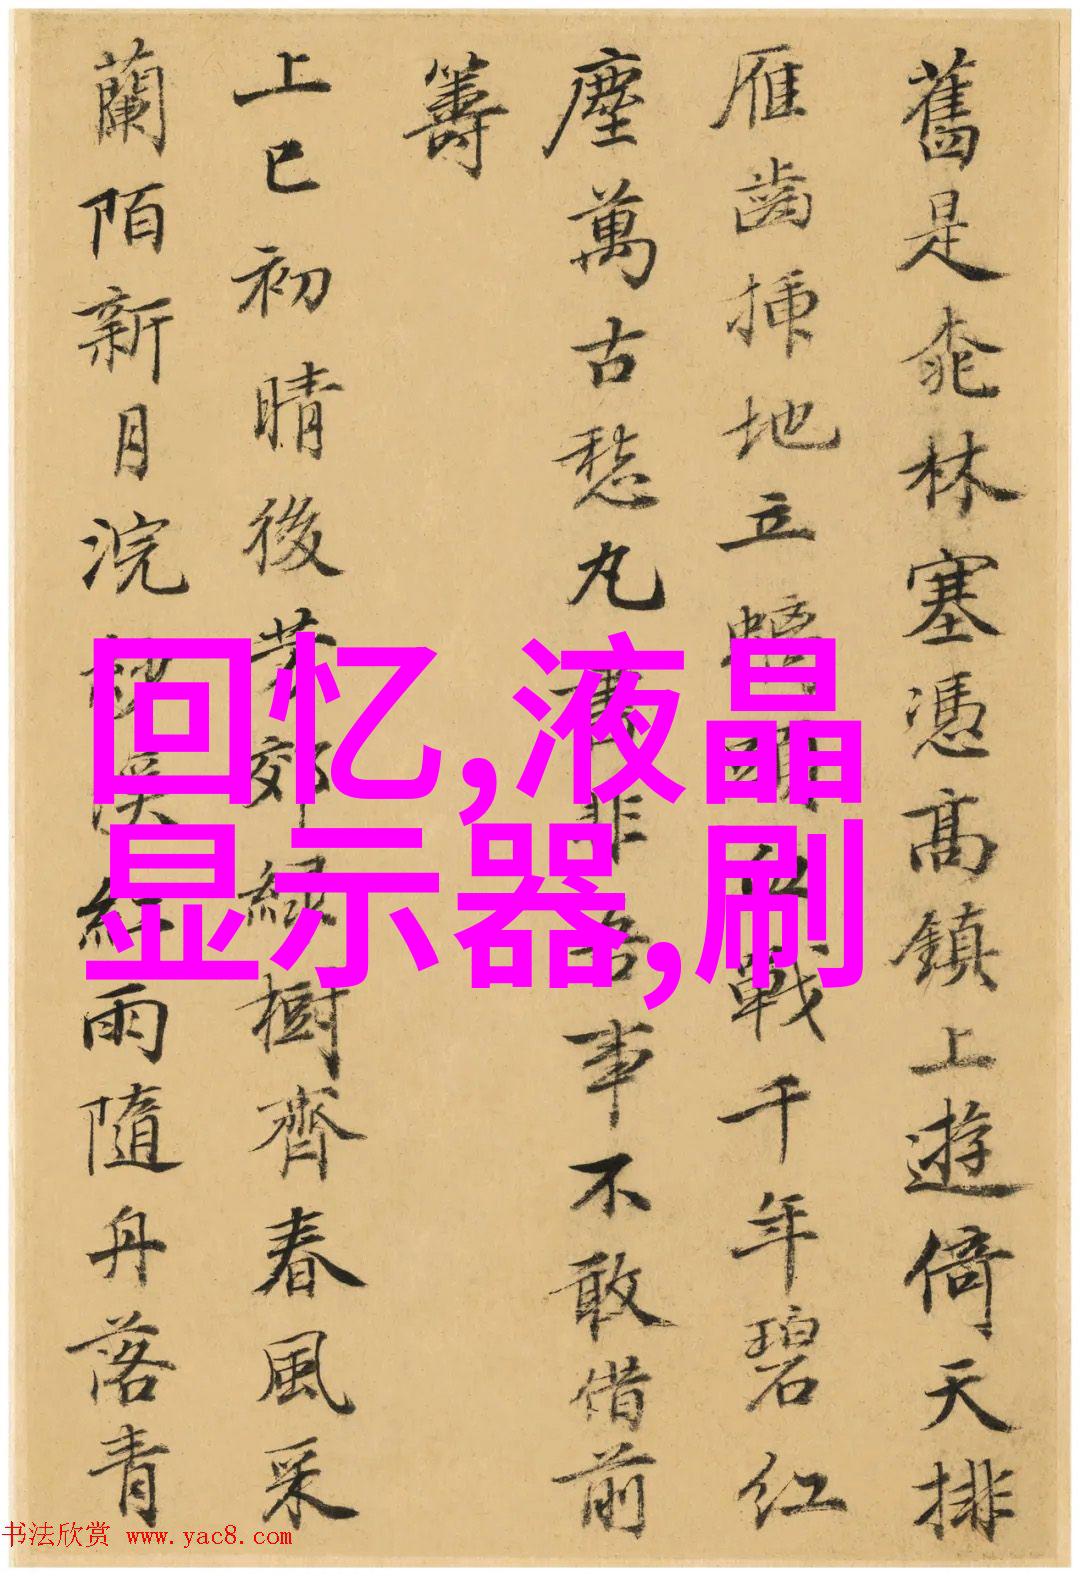 舊是桃林塞憑高鎮上遊倚天排
雁齒插地立戰千年碧紅
塵萬古愁丸書非吾事不敢借前
籌
上巳初晴後芳郊綠樹齊春風采
蘭陌新月浣溪紅雨隨舟落青
回忆,液晶
显示器,刷
书法欣赏 www.yac8.com